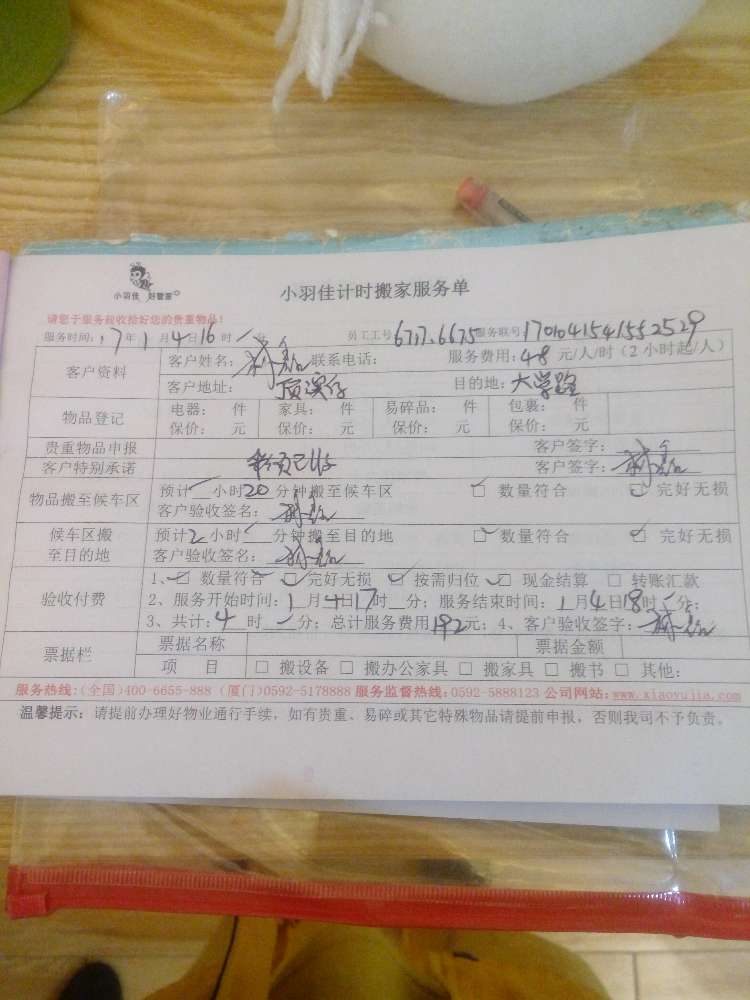 小羽佳 好管家
小羽佳计时搬家服务单
请您于服务前收拾好您的贵重物品！
服务时间：17年1月4日16时 分 员工工号6717.6675服务联号1701041541552529
客户资料 客户姓名： 联系电话： 服务费用：48元/人/时（2小时起/人）
客户地址：顶溪仔 目的地：大学路
物品登记 电器： 件 家具： 件 易碎品： 件 包裹： 件
保价： 元 保价： 元 保价： 元 保价： 元
贵重物品申报 客户签字：
客户特别承诺 客户签字：
物品搬至候车区 预计 小时20分钟搬至候车区 □ 数量符合 □ 完好无损
客户验收签名：
候车区搬至目的地 预计2小时 分钟搬至目的地 □ 数量符合 □ 完好无损
客户验收签名：
验收付费 1、□ 数量符合 □ 完好无损 □ 按需归位 □ 现金结算 □ 转账汇款
2、服务开始时间：1月4日17时 分；服务结束时间：1月4日18时 分；
3、共计：4时 分；总计服务费用192元；4、客户验收签字：
票据栏 票据名称 票据金额
项 目 □ 搬设备 □ 搬办公家具 □ 搬家具 □ 搬书 □ 其他：
服务热线：(全国)400-6655-888 (厦门)0592-5178888 服务监督热线：0592-5888123 公司网站：www.xiaoyujia.com
温馨提示：请提前办理好物业通行手续，如有贵重、易碎或其它特殊物品请提前申报，否则我司不予负责。